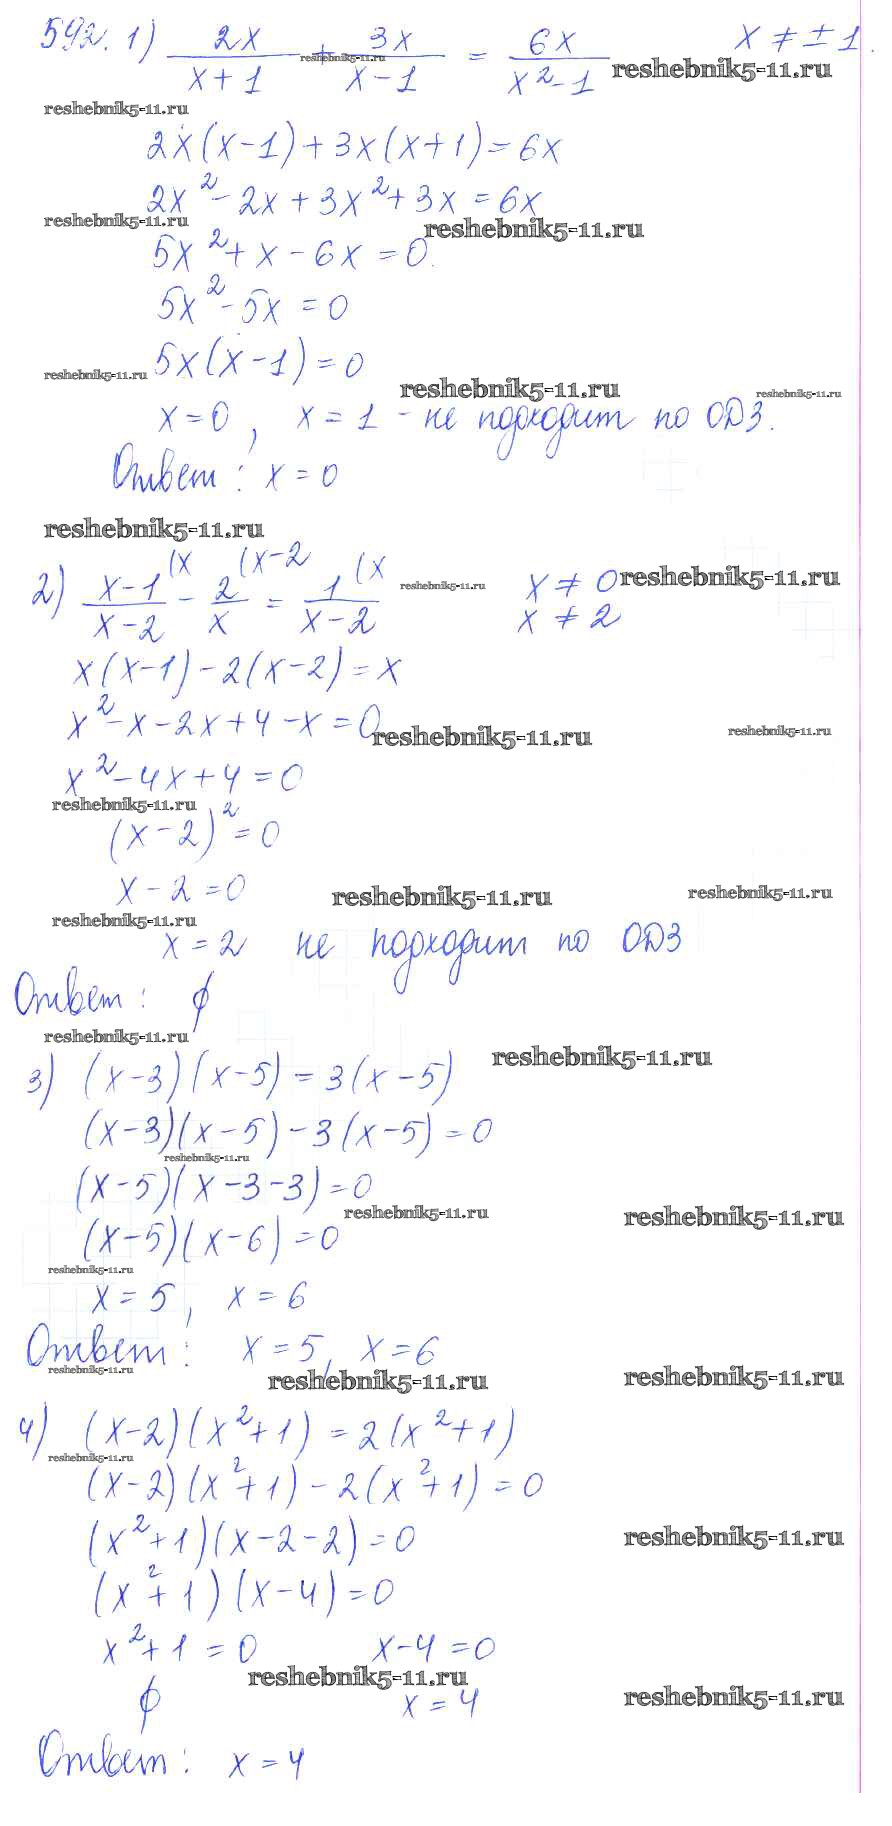 592. 1) 2x/(x+1) + 3x/(x-1) = 6x/(x²-1)   x ≠ ±1.
reshebnik5-11.ru
reshebnik5-11.ru
reshebnik5-11.ru
2x(x-1)+3x(x+1)=6x
2x²-2x+3x²+3x=6x
reshebnik5-11.ru
reshebnik5-11.ru
5x²+x-6x=0.
5x²-5x=0
5x(x-1)=0
reshebnik5-11.ru
reshebnik5-11.ru
reshebnik5-11.ru
x=0, x=1 - не подходит по ОДЗ.
Ответ: x=0
reshebnik5-11.ru
2) (x-1)/(x-2) (x - 2/x (x-2 = 1/(x-2) (x   x ≠ 0
reshebnik5-11.ru
reshebnik5-11.ru
x ≠ 2
x(x-1)-2(x-2)=x
x²-x-2x+4-x=0
reshebnik5-11.ru
reshebnik5-11.ru
x²-4x+4=0
reshebnik5-11.ru
(x-2)²=0
x-2=0
reshebnik5-11.ru
reshebnik5-11.ru
reshebnik5-11.ru
x=2 не подходит по ОДЗ
Ответ: ∅
reshebnik5-11.ru
reshebnik5-11.ru
3) (x-3)(x-5)=3(x-5)
(x-3)(x-5)-3(x-5)=0
reshebnik5-11.ru
(x-5)(x-3-3)=0
reshebnik5-11.ru
reshebnik5-11.ru
(x-5)(x-6)=0
reshebnik5-11.ru
x=5, x=6
Ответ: x=5, x=6
reshebnik5-11.ru
reshebnik5-11.ru
reshebnik5-11.ru
4) (x-2)(x²+1)=2(x²+1)
reshebnik5-11.ru
(x-2)(x²+1)-2(x²+1)=0
(x²+1)(x-2-2)=0
reshebnik5-11.ru
(x²+1)(x-4)=0
x²+1=0   x-4=0
reshebnik5-11.ru
∅   x=4
reshebnik5-11.ru
Ответ: x=4